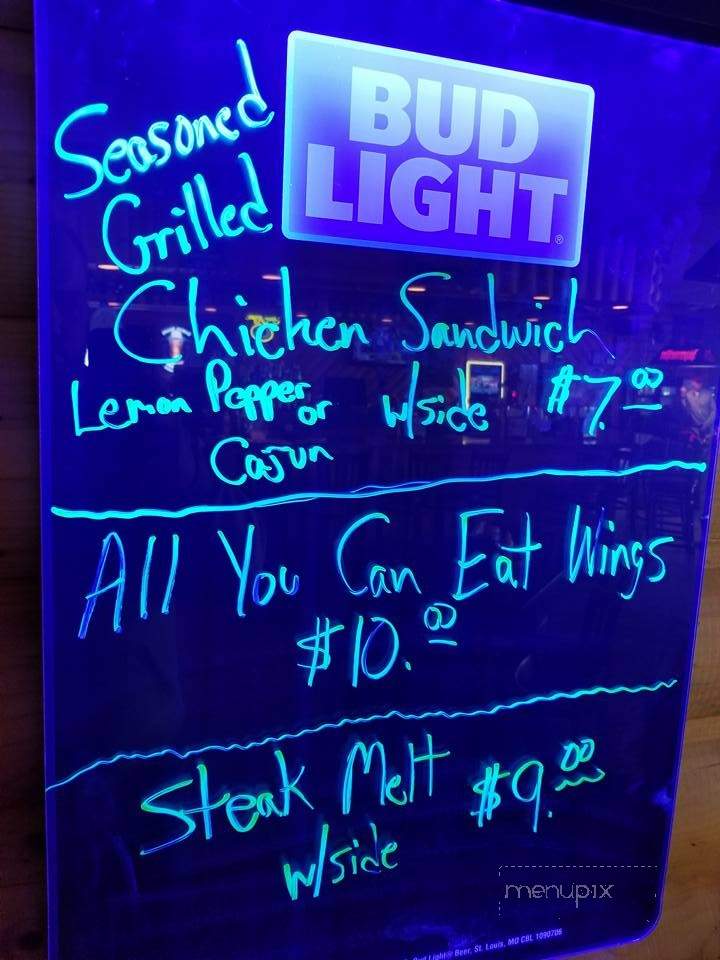 BUD
LIGHT®
Seasoned
Grilled
Chicken Sandwich
Lemon Pepper or w/side $7.00
Cajun
All You Can Eat Wings
$10.00
Steak Melt $9.00
w/side
menupix
Bud Light® Beer, St. Louis, MO CBL 1090706